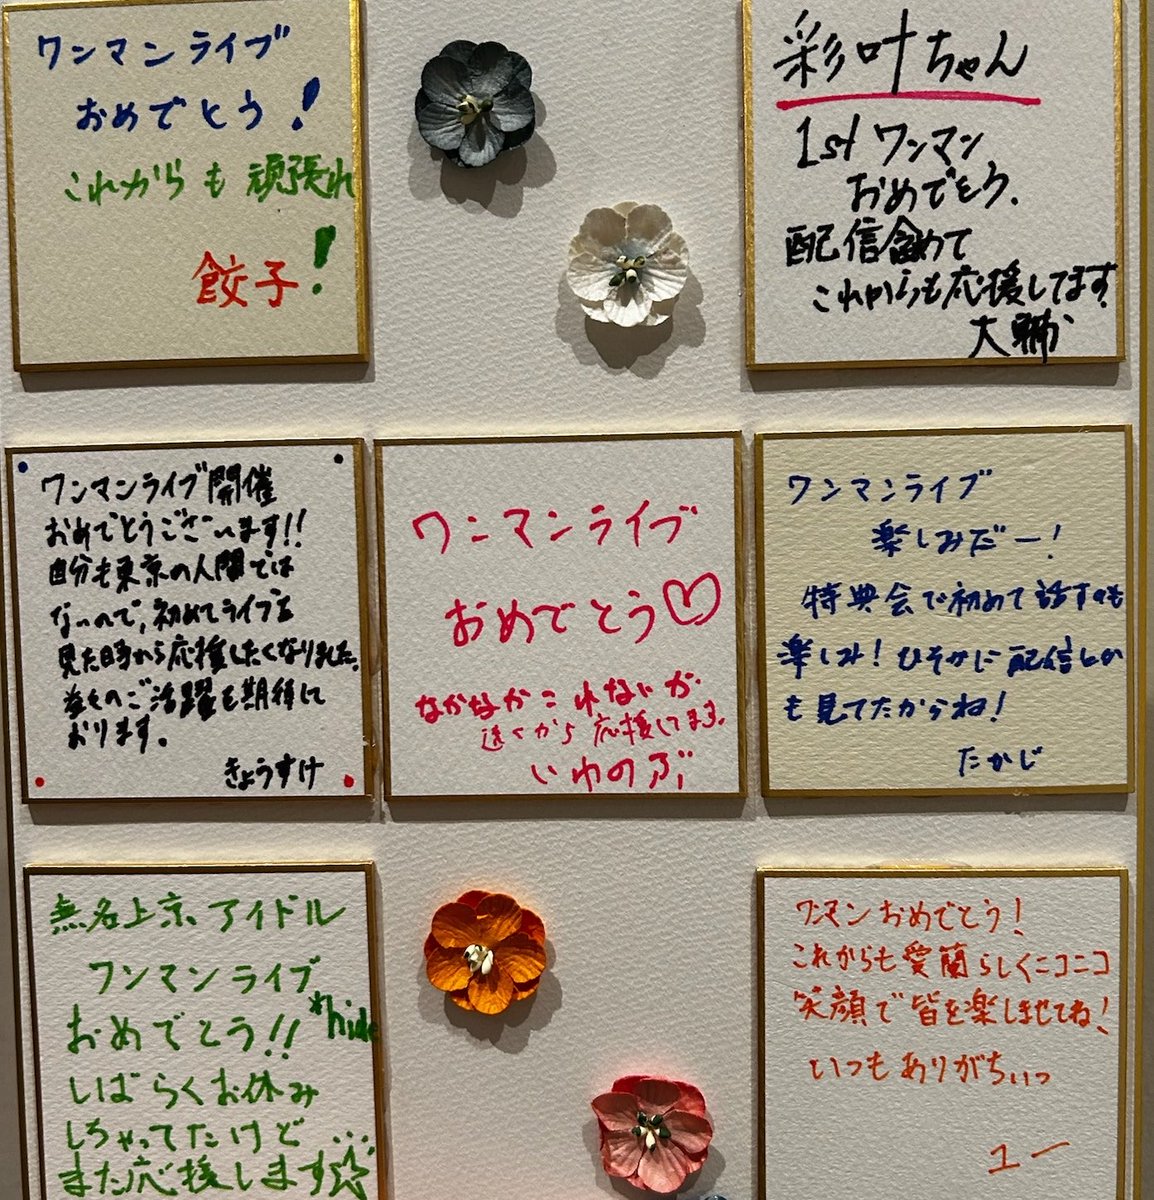 ワンマンライブ
おめでとう!
これからも頑張れ!
餃子
彩叶ちゃん
1stワンマン
おめでとう.
配信含めて
これからも応援してます
大輔
ワンマンライブ開催
おめでとうございます!!
自分も東京の人間では
ないので,初めてライブを
見た時から応援したくなりました。
益々のご活躍を期待して
おります。
きょうすけ
ワンマンライブ
おめでとう♡
なかなかこれないが、
遠くから応援してます。
いわのぶ
ワンマンライブ
楽しみだー!
特典会で初めて話すのも
楽しみ!ひそかに配信しか
も見てたからね!
たかじ
無名上京アイドル
ワンマンライブ
おめでとう!!
*hide
しばらくお休み
しちゃってたけど
また応援します☆
ワンマンおめでとう!
これからも愛蘭らしくニコニコ
笑顔で皆を楽しませてね!
いつもありがちぃっ
ユー